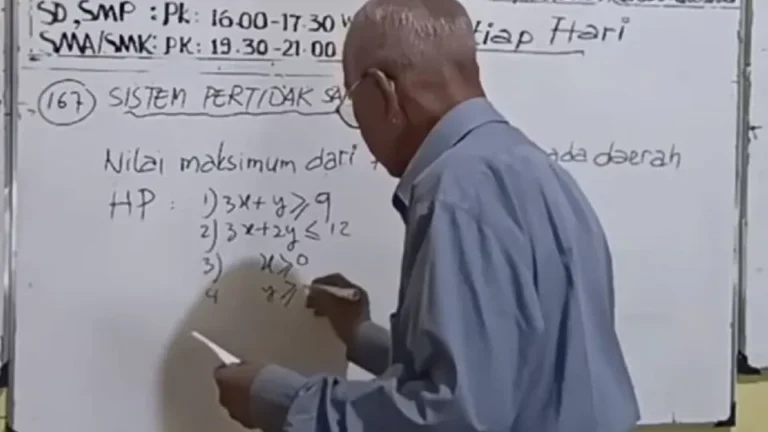 SD, SMP : PK: 16.00-17.30 W
SMA/SMK: PK: 19.30-21.00 tiap Hari
167 SISTEM PERTIDAK SA
Nilai maksimum dari ada daerah
HP : 1) 3x + y ≥ 9
2) 3x + 2y ≤ 12
3) x ≥ 0
4 y ≥